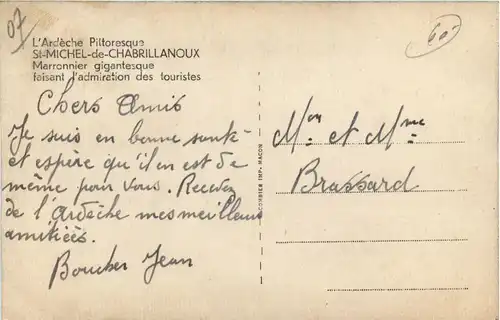 07
60-
L'Ardèche Pittoresque
St-MICHEL-de-CHABRILLANOUX
Marronnier gigantesque
faisant l'admiration des touristes
Chers Amis
Je suis en bonne santé
et espère qu'il en est de
même pour vous. Recevez
de l'Ardèche mes meilleurs
amitiées.
Boucher Jean
COMBIER IMP. MACON
Mon et Mme
Brassard